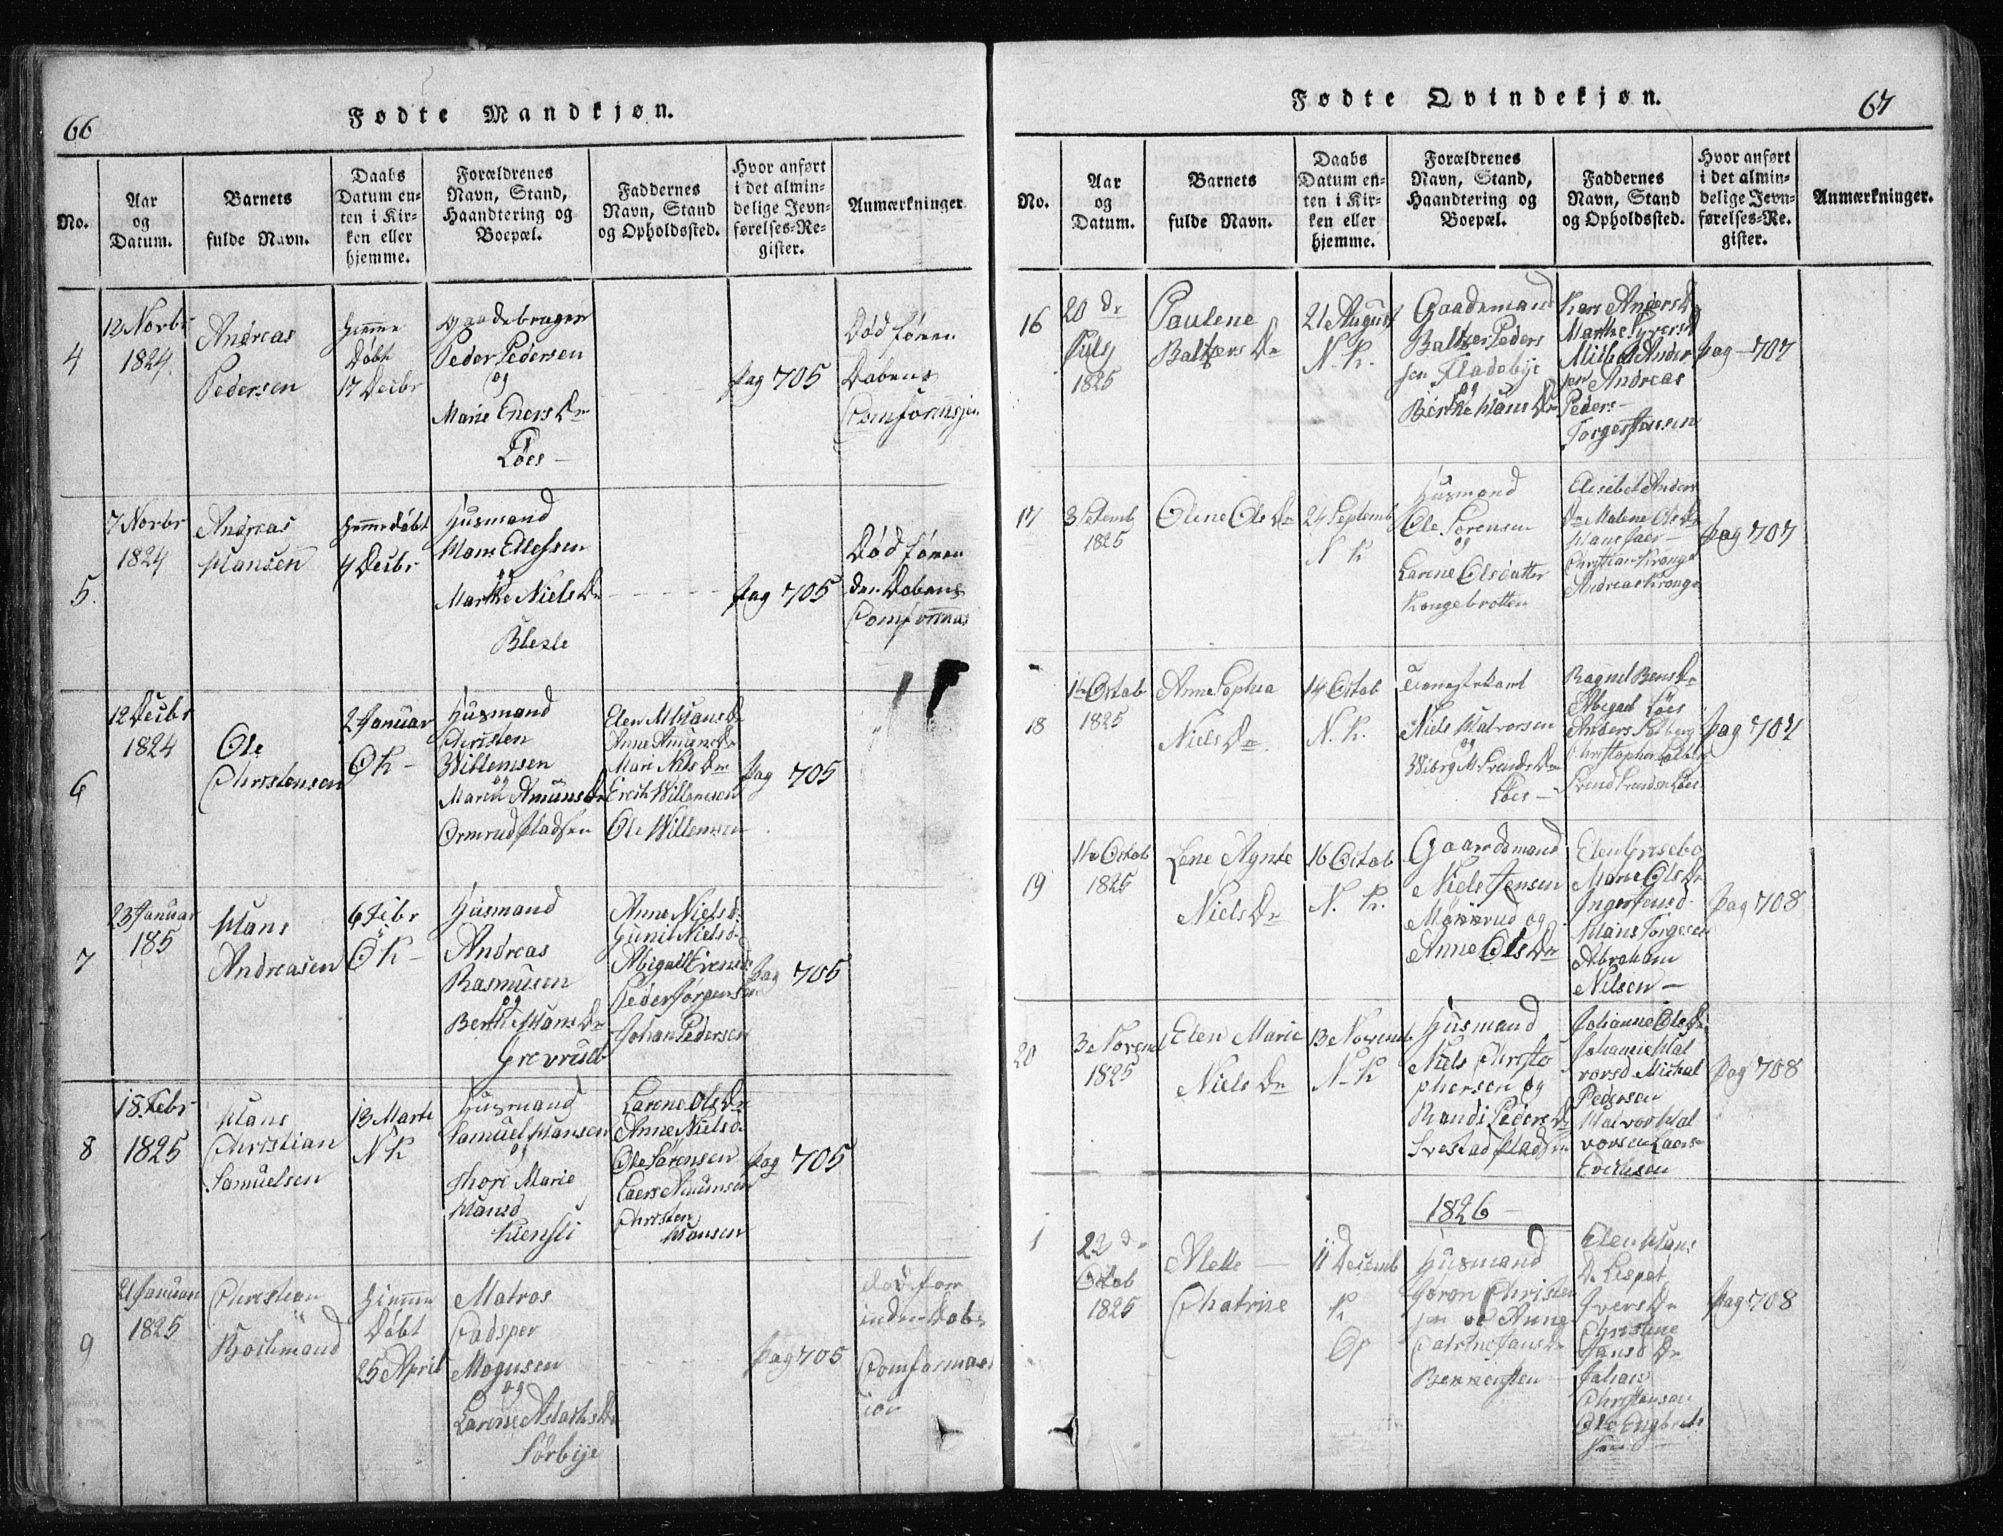 66
Fødte Mandkjøn.
No.
Aar
og
Datum.
Barnets
fulde Navn.
Daabs
Datum en-
ten i Kir-
ken eller
hjemme.
Forældrenes
Navn, Stand,
Haandtering og
Boepæl.
Faddernes
Navn, Stand
og Opholdssted.
Hvor anført
i det almin-
delige Jevn-
førelses-Re-
gister.
Anmærkninger.
4
12 Novbr
1824.
Andreas
Pedersen
hjemme
Døbt
17 Decbr
Peder Pedersen
og
Marie Eners Dr
Løes —
pag 705
Død føren
Dabens
5.
7 Novbr
1824
Andreas
Hansen
hjemme døbt
4 Decbr
Husmand
Hans Ellefsen
og
Marthe Niels Dr
Bleste
pag 705
Død føren
den Dabens
6
12 Decbr
1824
Ole
Christensen
2 Januar
OK —
Husmand
Christen
Willemsen
og
Maren Amuns Dr
Ormrud pladsen
Elen M Hans Dr
Anne Amuns Dr
Mari Nils Dr
Erich Willemsen
Ole Willemsen
pag 705
7
23 Januar
185
Hans
Andreasen
6 Febr
OK —
Husmand
Andreas
Rasmusen
og
Berthe Hans Dr
Grevrud
Anne Niels d.
Gunil Niels d.
Abigaell Evens d
Peder Jørgensen
Johan Pedersen
pag 705
8
18. Febr
1825
Hans
Christian
Samuelsen
13 Marte
N K
Husmand
Samuel Hansen
og
Thore Marie
Hansd
Kiensli
Larene Ols Dr
Anne Niels d.
Ole Sørensen
Laers Amunsen
Christen
Hansen
pag 705
9
21 Januar
1825
Christian
hjemme
Døbt
25 April
Matros
Cadsper
Mogusen
og
Sørbije
pag 705
død for
inden Dab
67
Fødte Qvindekjøn.
No.
Aar
og
Datum.
Barnets
fulde Navn.
Daabs
Datum en-
ten i Kir-
ken eller
hjemme.
Forældrenes
Navn, Stand,
Haandtering og
Boepæl.
Faddernes
Navn, Stand
og Opholdssted.
Hvor anført
i det almin-
delige Jevn-
førelses-Re-
gister.
Anmærkninger.
16
20 de
July
1825
Paulene
Baltzers Dr
21 August
N. K.
Gaademand
Baltzer Peders
sen Fladebye
og
Berthe Hans Dr
Kari Anders D
Marthe Syvers d
Andreas
Peders —
Torger Jansen
pag — 707
17
3 Setemb
1825
Olene Ols Dr
24 Septemb
N K
Husmand
Ole Sørensen
og
Larene Olsdatter
Kongebrotten
Elisebet Anders
Dr Malene Ols Dr
Christian Kronge
Andreas Kronge
pag 707
18
1te Octob
1825
Anne Sophia
Niels Dr
14 Octob
N. K.
Tienestekarl
Niels Halvorsen
og
Wiborg M Svends Dr
Løes —
Ragnel Bens Dr
Abigael Løes
Anders Solberg
Christopher Solber
Svend Svendsen Løes
pag 707
19
1te Octob
1825
Lene Agnte
Niels Dr
16 Octob
N. K.
Gaardemand
Niels Jensen
Mønnerud og
Anne Ols Dr
Elen Grisebo
Marie Ols Dr
Inger Jensd.
Hans Torgesen
Abraham
Nilsen —
pag 708
20
3 Novem
1825
Elen Marie
Niels Dr
13 Novemb
N. K
Husmand
Niels Christo
phersen og
Randi Peders Dr
Svestad pladsen
Johanne Ols Dr
Johanne Hal
vorsd Michal
Pedersen
Halvor Hal
vorsen Laers
Erichsen
pag 708
1826
1
22 de
Octob
1825
Alette —
Chatrine
11 Decemb
K
Op
Husmand
Søren Christen
sen og Anne
Catrine Jans Dr
Bennesten
Elen Hans
Dr Lispet
Ivers Dr
Christine
Jansd Dr
Johan
Christensen
Ole Engbret
sen —
pag 708